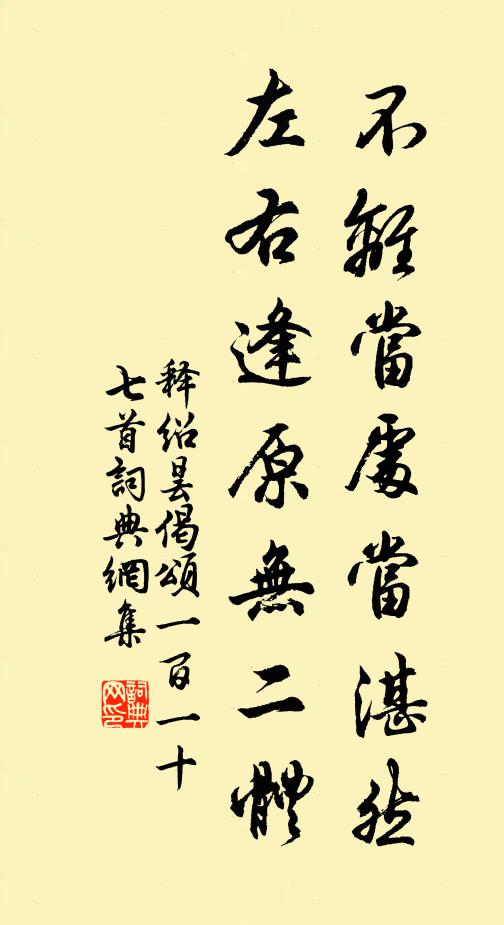 不離當處當湛然
左右逢原無二體
释绍昙偈頌一百一十
七首詞典網集
詞典
网印